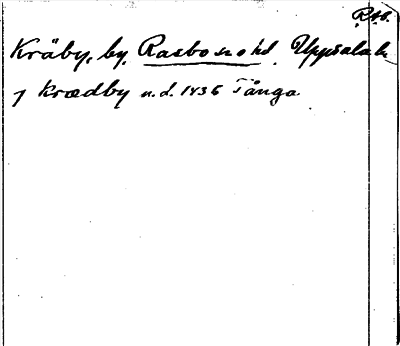 RAB.
Kräby, by, Rasbo sn o hd. Uppsala l.
j Krædby u.d. 1436 Tånga